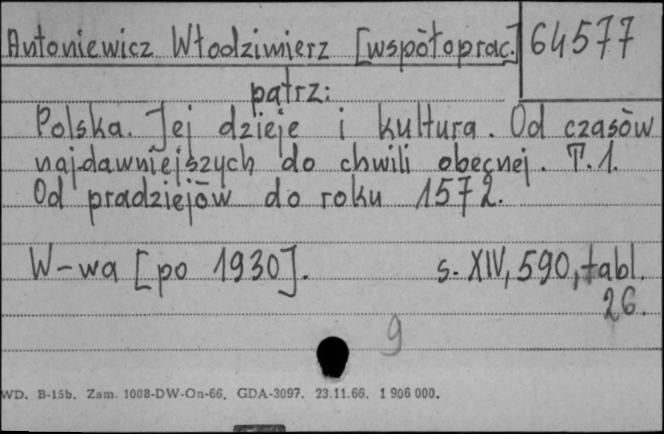 Antoniewicz Włodzimierz [współoprac.] 64577
patrz:
Polska. Jej dzieje i kultura. Od czasów
najdawniejszych do chwili obecnej. T.1.
Od pradziejów do roku 1572.
W-wa [po 1930]. s. XIV, 590, tabl.
26.
9
WD. B-15b. Zam. 1008-DW-On-66. GDA-3097. 23.11.66. 1 906 000.